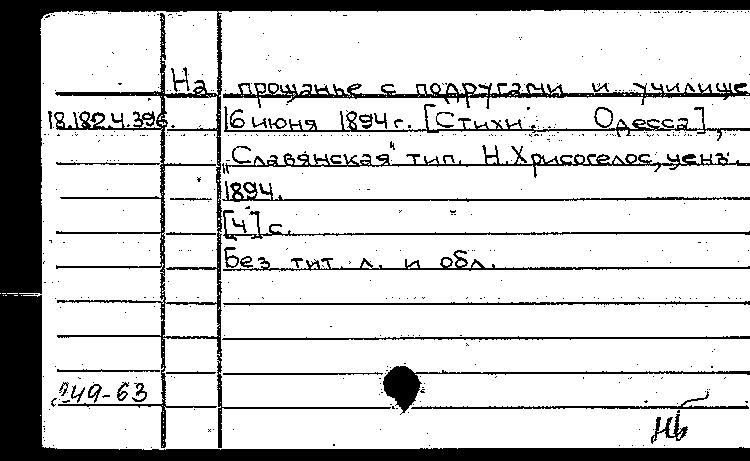 На прощанье с подругами и училище
18.182.4.396. 16 июня 1894 г. [Стихи. Одесса],
"Славянская" тип. Н. Хрисогелос, ценз.
1894.
[4] с.
Без тит. л. и обл.
249-63